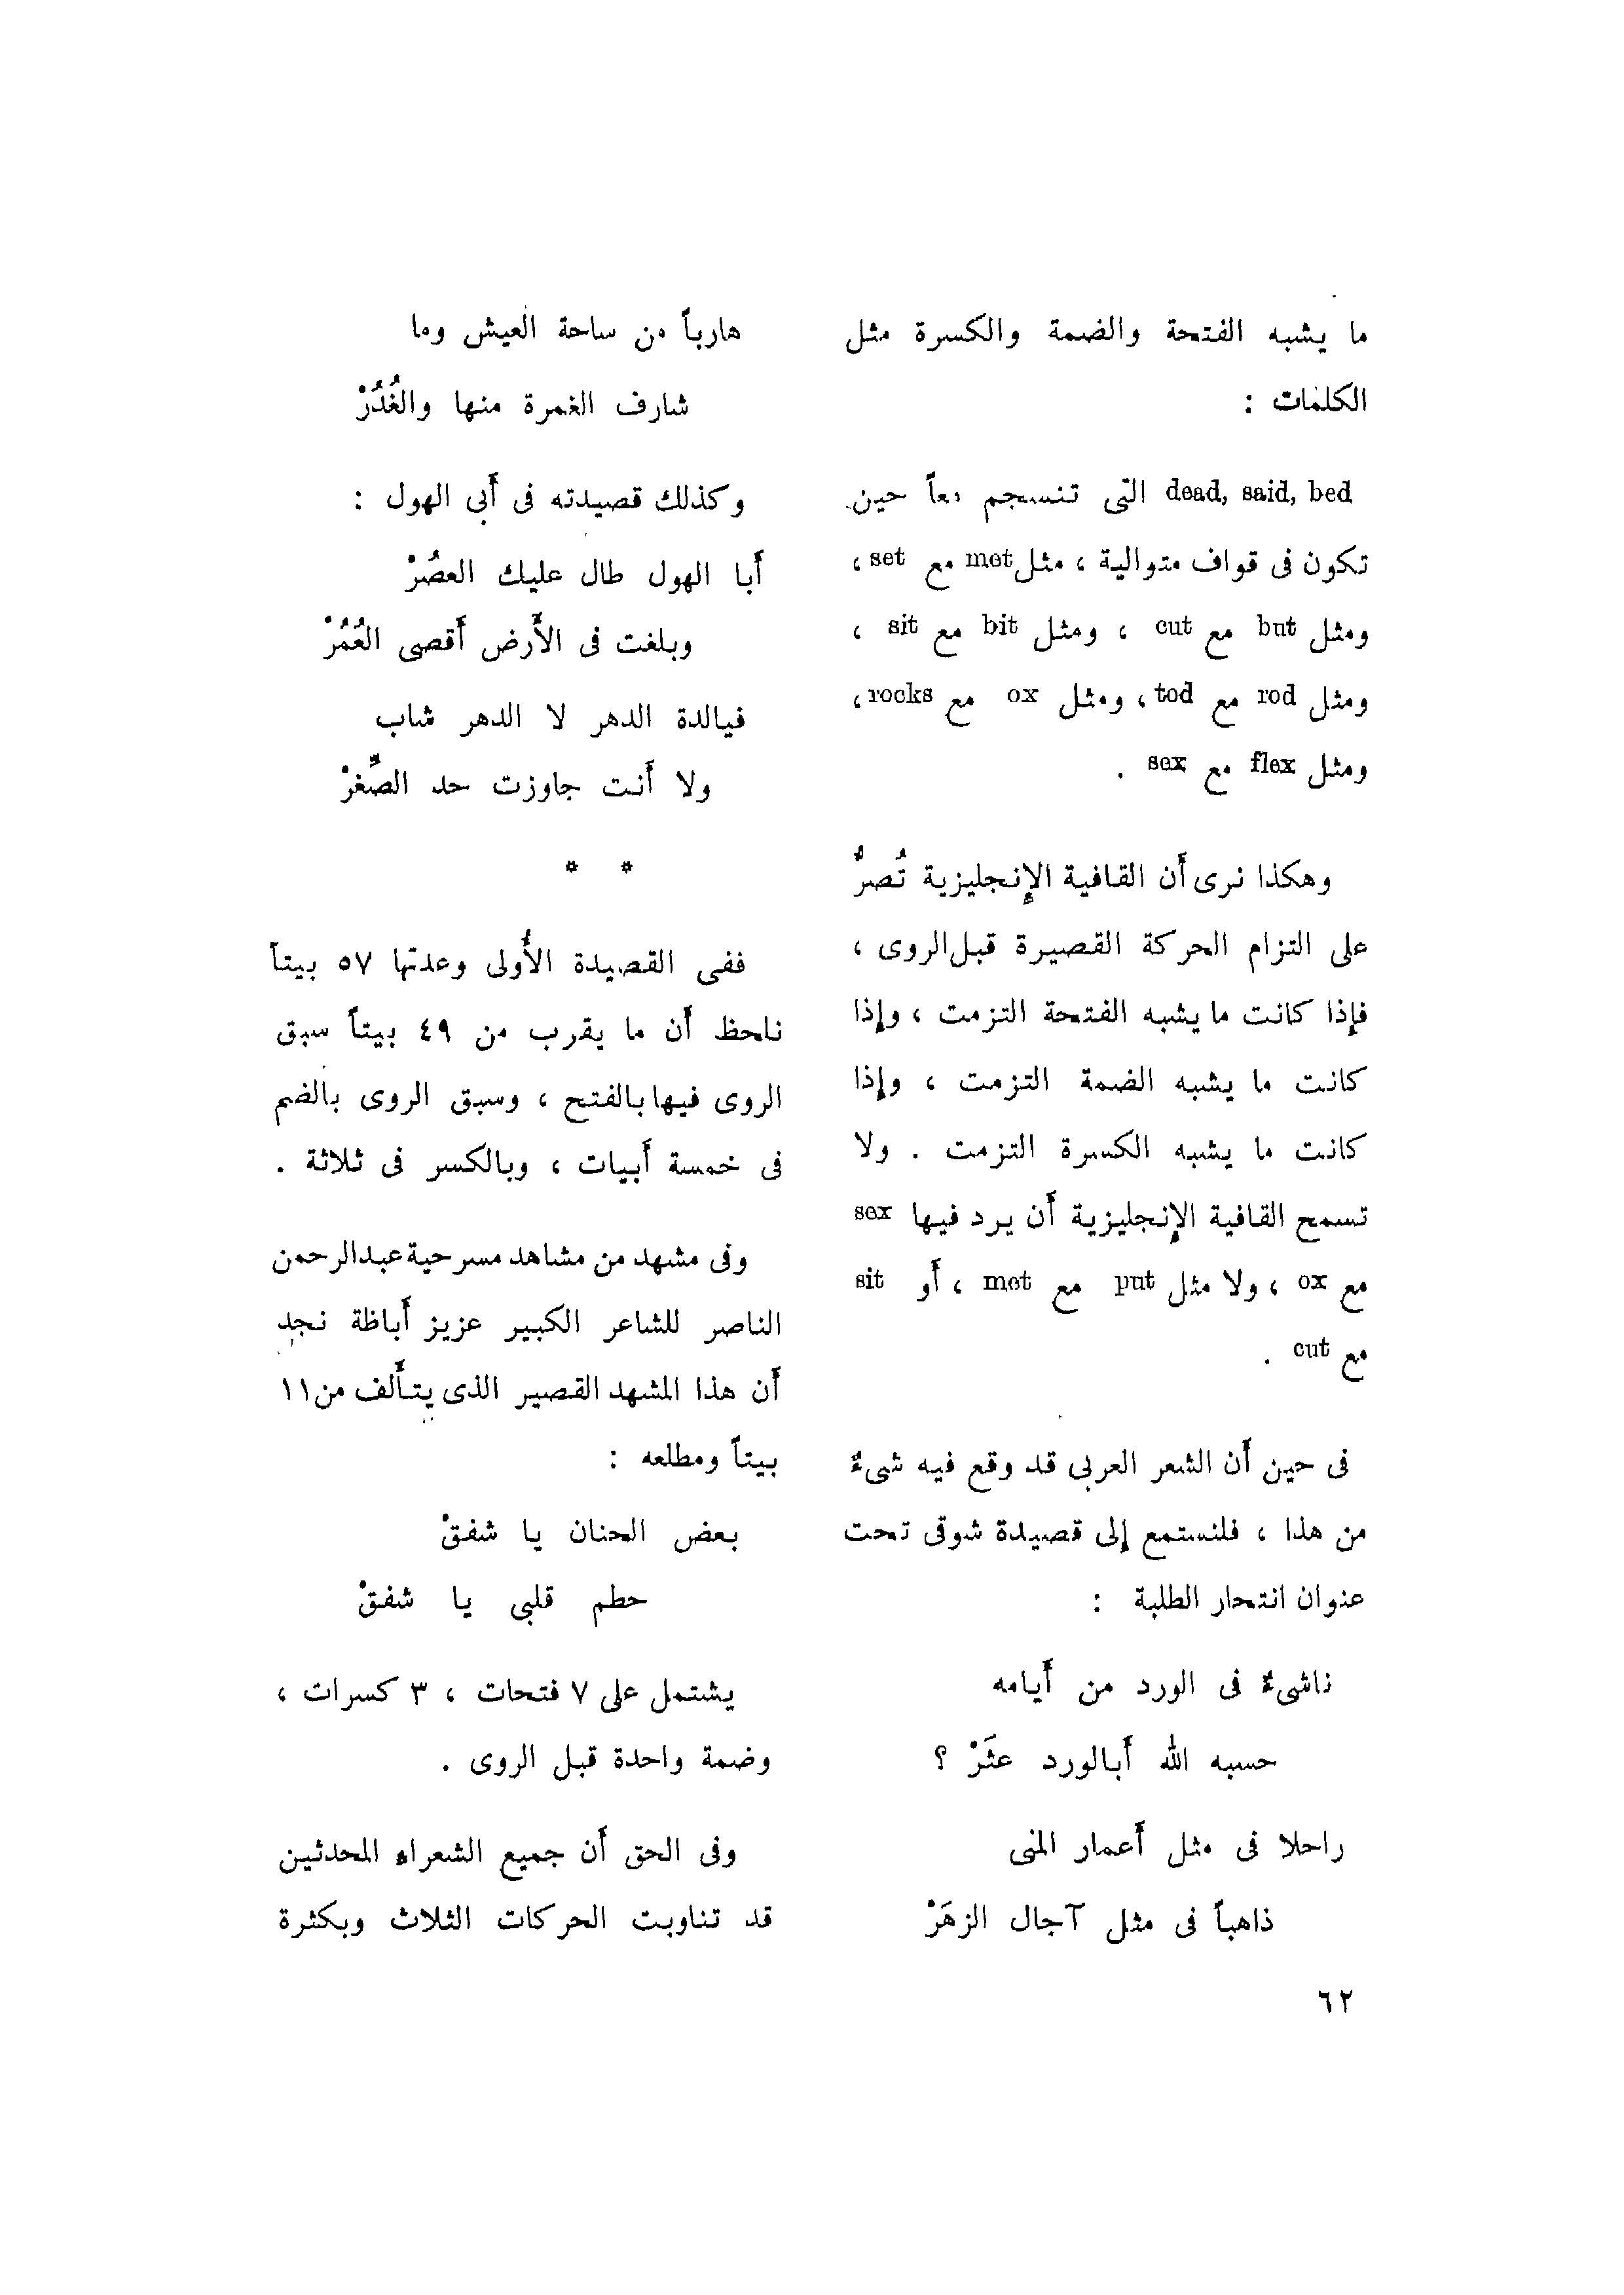 ما يشبه الفتحة والضمة والكسرة مثل
الكلمات :
dead, said, bed التى تنسجم معاً حين
تكون فى قواف متوالية ، مثل met مع set ،
ومثل but مع cut ، ومثل bit مع sit ،
ومثل rod مع tod ، ومثل ox مع rocks ،
ومثل flex مع sex .
وهكذا نرى أَن القافية الإنجليزية تُصرُّ
على التزام الحركة القصيرة قبل الروى ،
فإذا كانت ما يشبه الفتحة التزمت ، وإذا
كانت ما يشبه الضمة التزمت ، وإذا
كانت ما يشبه الكسرة التزمت . ولا
تسمح القافية الإنجليزية أَن يرد فيها sex
مع ox ، ولا مثل put مع met ، أَو sit
مع cut .
فى حين أَن الشعر العربى قد وقع فيه شىءٌ
من هذا ، فلنستمع إلى قصيدة شوقى تحت
عنوان انتحار الطلبة :
ناشىءٌ فى الورد من أَيامه
حسبه الله أَبالورد عثَرْ ؟
راحلا فى مثل أَعمار المنى
ذاهباً فى مثل آجال الزهَرْ
هارباً من ساحة العيش وما
شارف الغمرة منها والغُدُرْ
وكذلك قصيدته فى أَبى الهول :
أَبا الهول طال عليك العصُرْ
وبلغت فى الأَرض أَقصى العُمُرْ
فيالدة الدهر لا الدهر شاب
ولا أَنت جاوزت حد الصِّغرْ
* *
ففى القصيدة الأُولى وعدتها ٥٧ بيتاً
ناحظ أَن ما يقرب من ٤٩ بيتاً سبق
الروى فيها بالفتح ، وسبق الروى بالضم
فى خمسة أَبيات ، وبالكسر فى ثلاثة .
وفى مشهد من مشاهد مسرحية عبدالرحمن
الناصر للشاعر الكبير عزيز أَباظة نجد
أَن هذا المشهد القصير الذى يتأَلف من ١١
بيتاً ومطلعه :
بعض الحنان يا شفقْ
حطم قلبى يا شفقْ
يشتمل على ٧ فتحات ، ٣ كسرات ،
وضمة واحدة قبل الروى .
وفى الحق أَن جميع الشعراء المحدثين
قد تناوبت الحركات الثلاث وبكثرة
٦٢